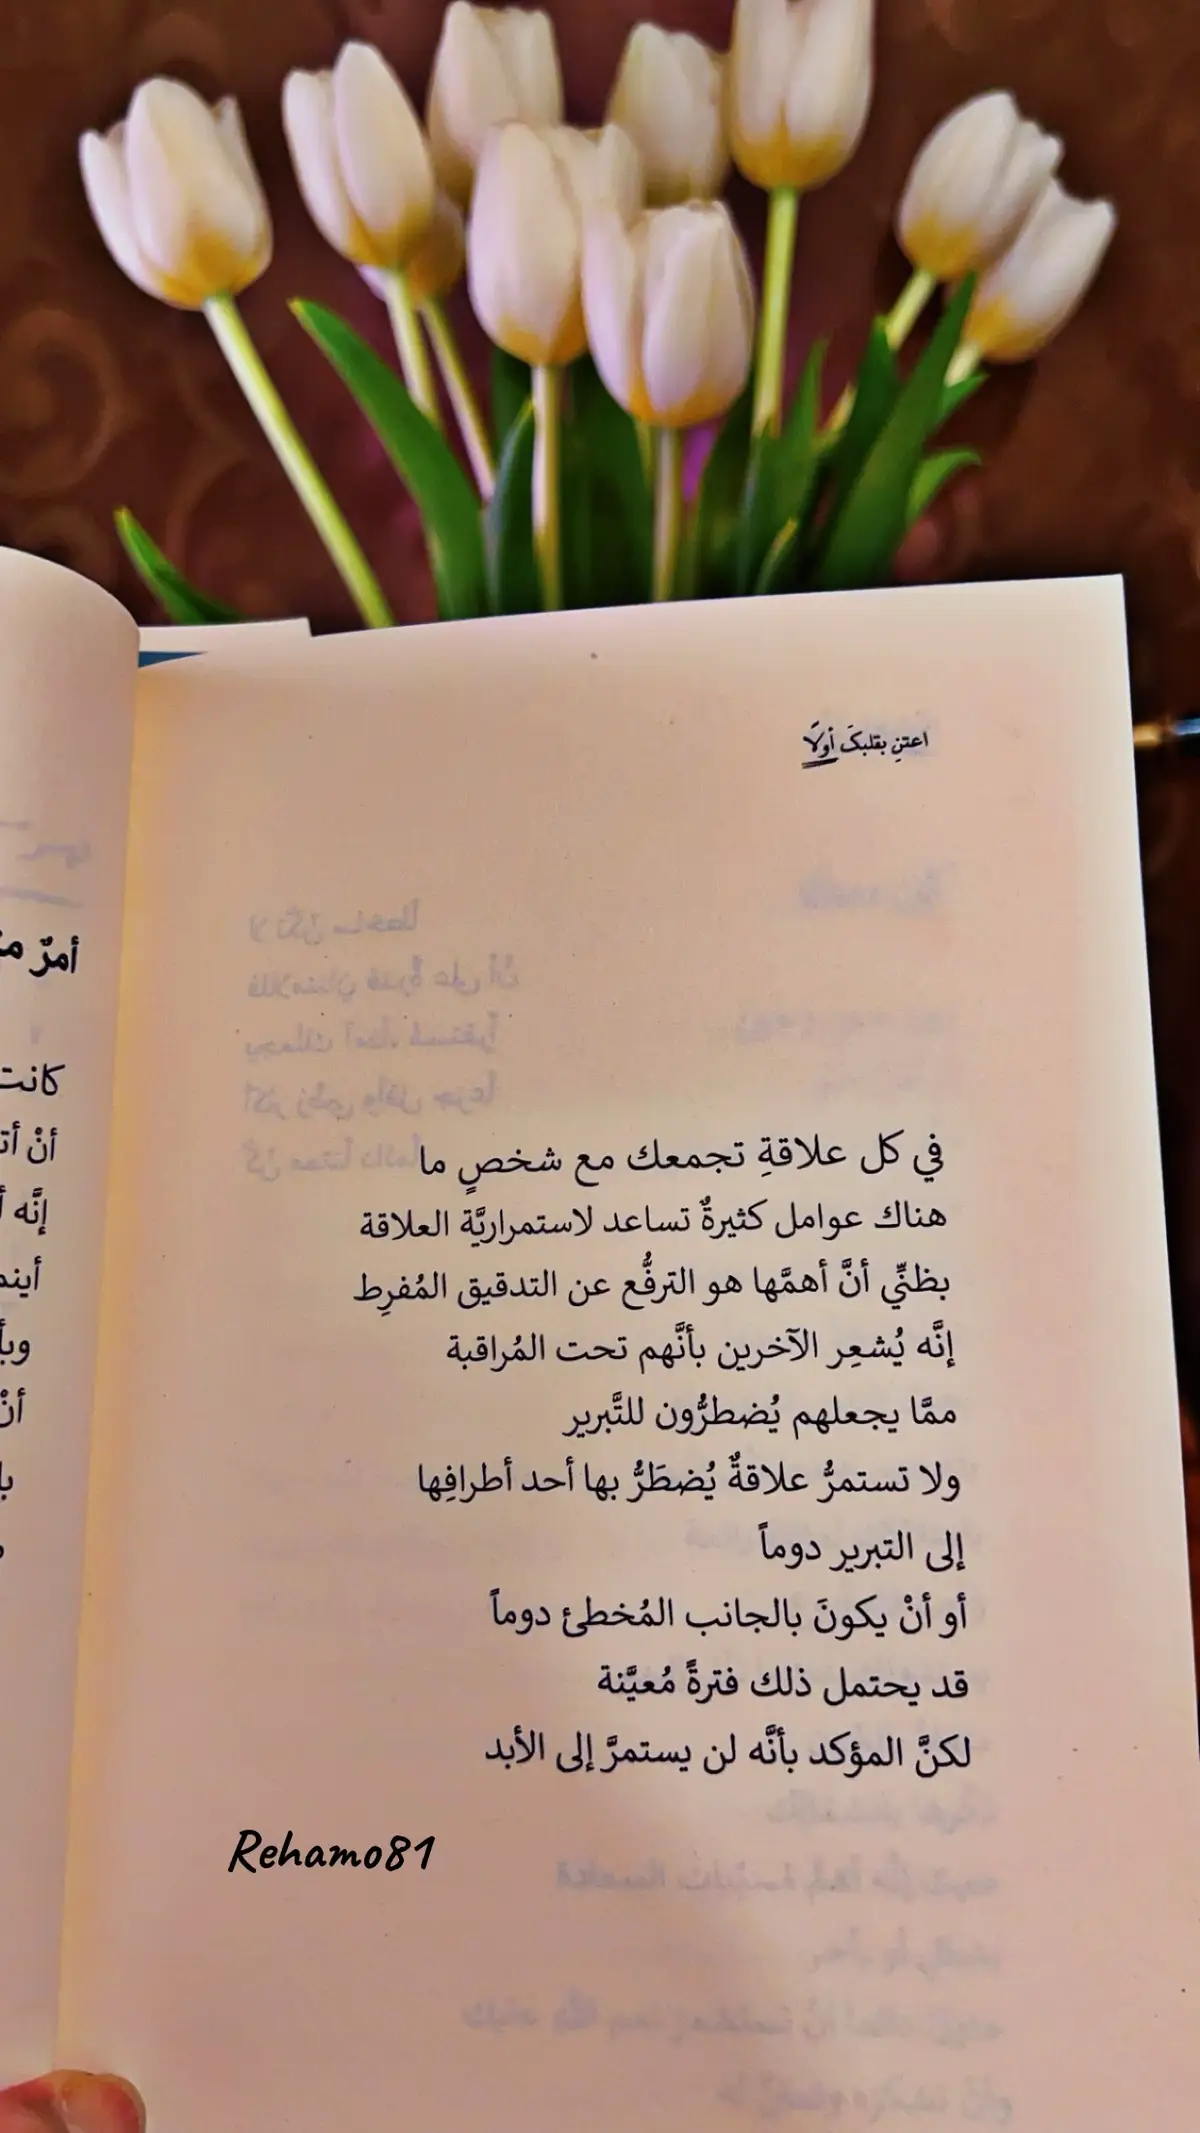 اعتنِ بقلبكَ أولًا
في كل علاقةِ تجمعك مع شخصٍ ما
هناك عوامل كثيرةٌ تساعد لاستمراريَّة العلاقة
بظنِّي أنَّ أهمَّها هو الترفُّع عن التدقيق المُفرِط
إنَّه يُشعِر الآخرين بأنَّهم تحت المُراقبة
ممَّا يجعلهم يُضطرُّون للتَّبرير
ولا تستمرُّ علاقةٌ يُضطَرُّ بها أحد أطرافِها
إلى التبرير دوماً
أو أنْ يكونَ بالجانب المُخطئ دوماً
قد يحتمل ذلك فترةً مُعيَّنة
لكنَّ المؤكد بأنَّه لن يستمرَّ إلى الأبد
Rehamo81
أمرٌ
كانت
أنْ
إنَّه